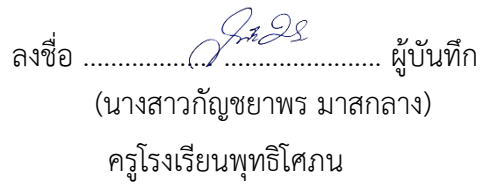 ลงชื่อ ........................................ ผู้บันทึก
(นางสาวกัญชยาพร มาสกลาง)
ครูโรงเรียนพุทธิโศภน